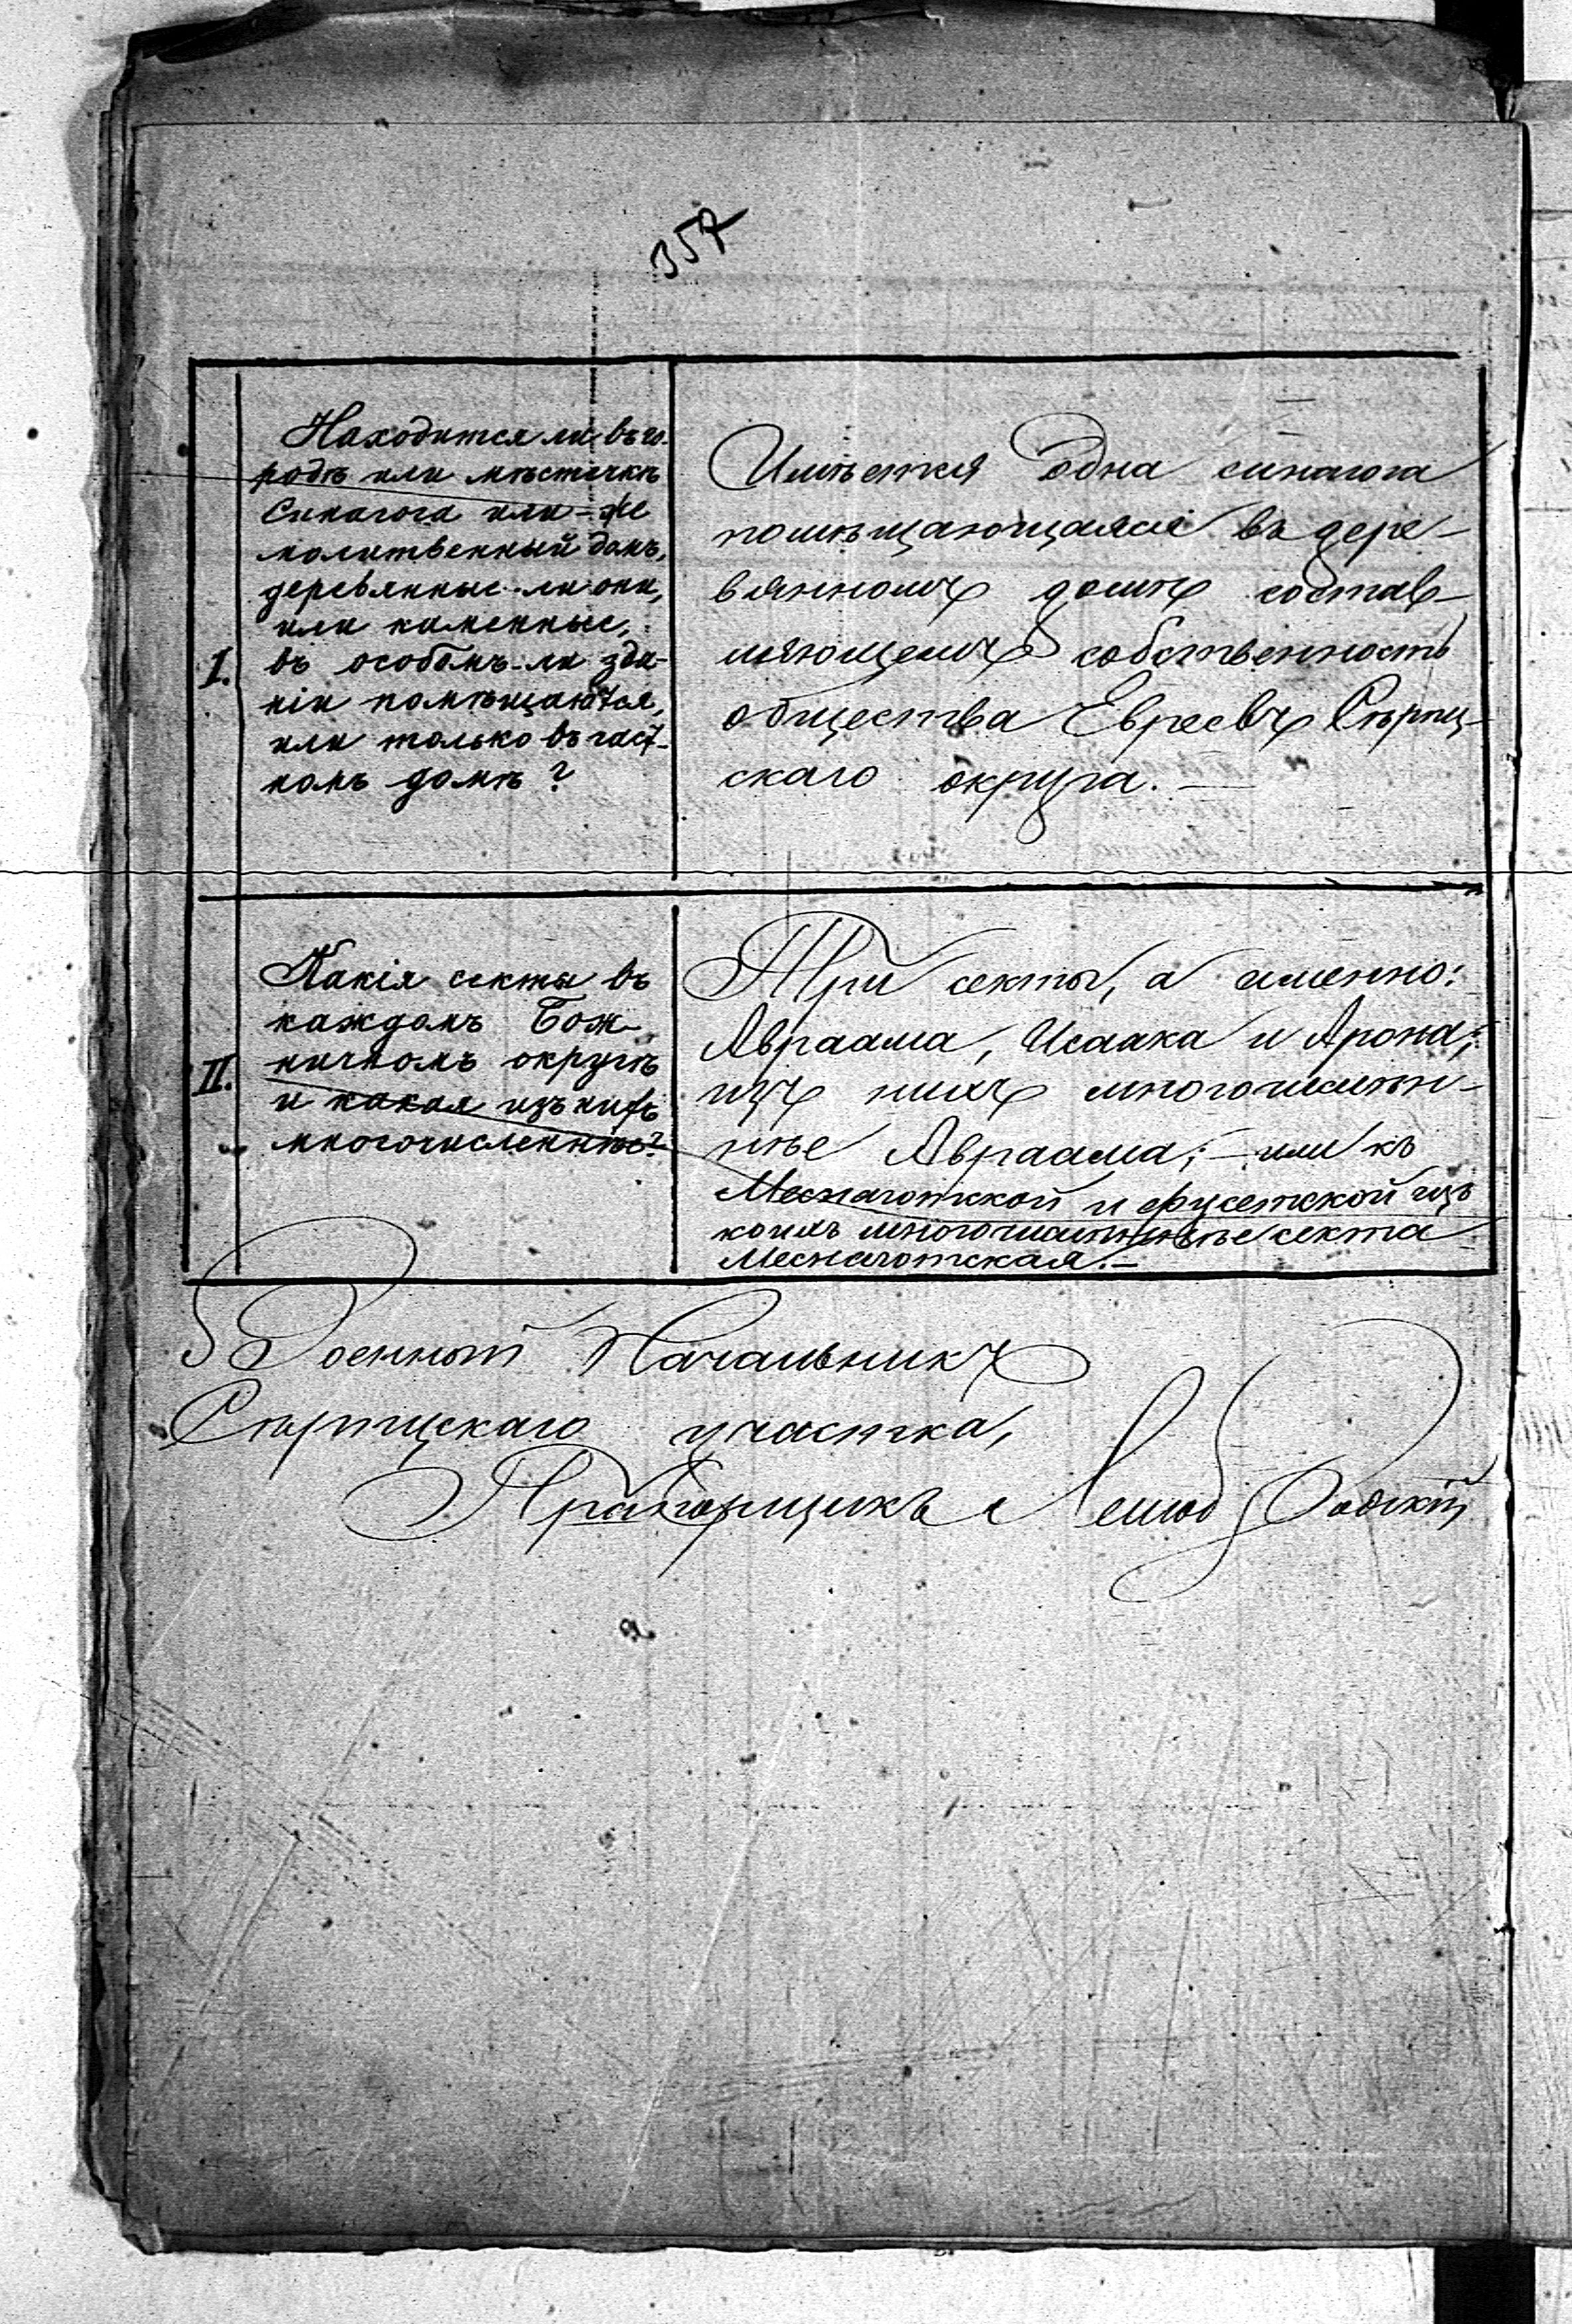 357
I.
Находится ли въ го-
родѣ или мѣстечкѣ
Синагога или-же
молитвенный домъ,
деревянные-ли они,
или каменные,
въ особомъ-ли зда-
ніи помѣщаются,
или только въ част-
номъ домѣ?
Имѣется одна синагога
помѣщающаяся въ дере-
вянномъ домѣ состав-
ляющемъ собственность
общества Евреевъ Сѣрпц-
скаго округа. —
II.
Какія секты въ
каждомъ Бож-
ничномъ округѣ
и какая изъ нихъ
многочисленнѣе?
Три секты, а именно:
Авраама, Исаака и Арона;
изъ нихъ многочислен-
нѣе Авраама; — или къ
Меснаготской и Хусетской изъ
коихъ многочисленнѣе секта
Меснаготская. —
Военный Начальникъ
Сѣрпцскаго участка,
Прапорщикъ